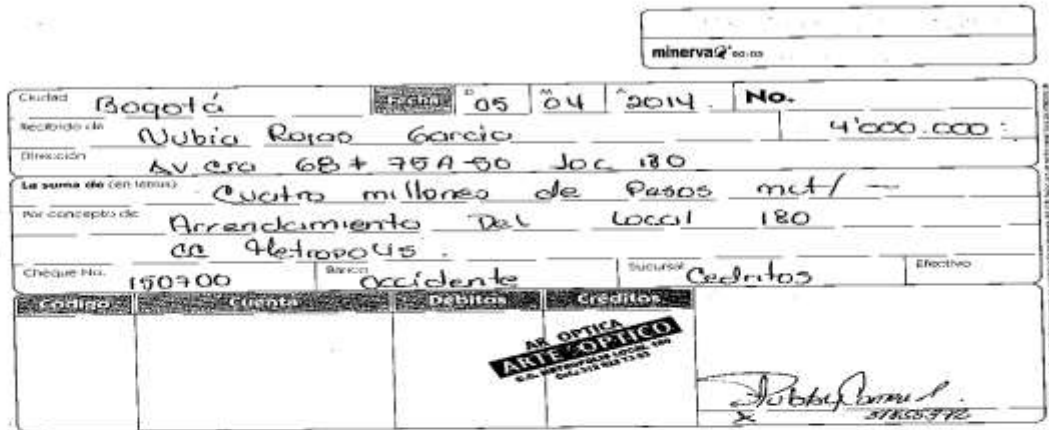 minerva 60-03
Ciudad Bogotá Fecha D 05 M 04 A 2014 No.
Recibido de Nubia Rojas Garcia 4'000.000
Dirección AV cra 68 # 75A-50 loc 180
La suma de (en letras) Cuatro millones de Pesos mct/
Por concepto de Arrendamiento Del Local 180
CC Metropolis.
Cheque No. 150700 Banco Occidente Sucursal Cedritos Efectivo
Código Cuenta Débitos Créditos
AR OPTICA
ARTE OPTICO
C.C. METROPOLIS LOCAL 180